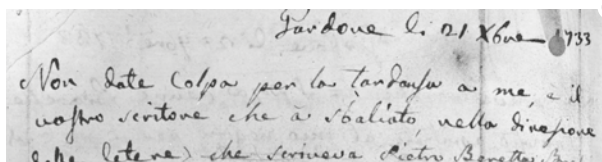 Gardone li 21 Xbre 1733
Non date Colpa per la tardansa a me, e il
vostro scritore che a sbaliato nella diresione
delle letere) che scriveva Pietro Beretta